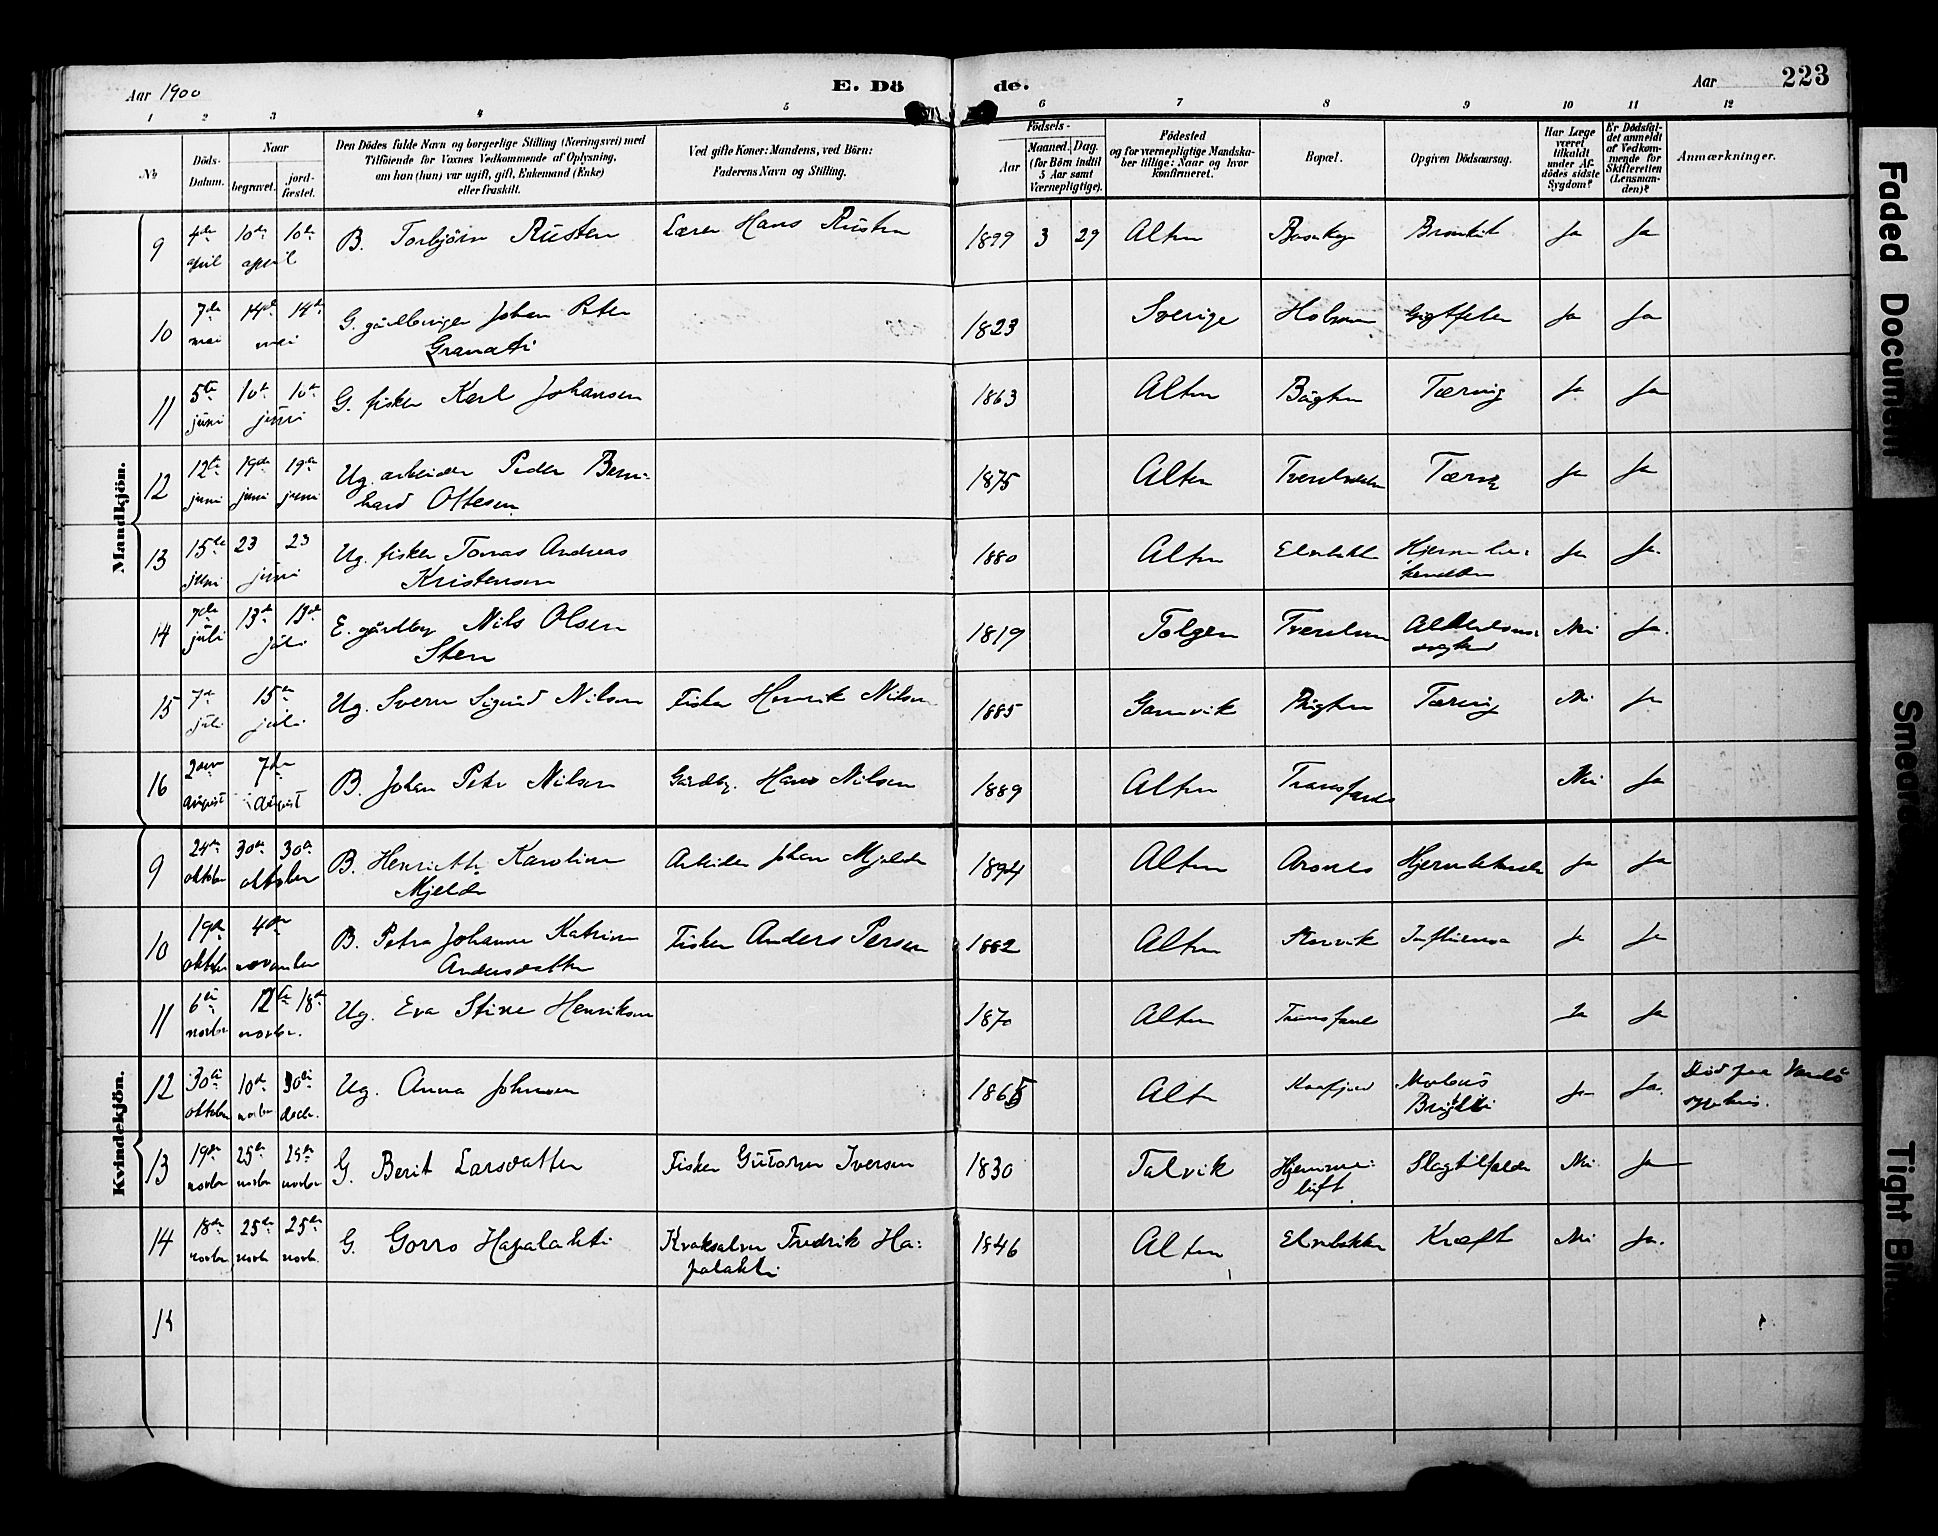 Aar 1900 E. Dö de. Aar 223
1 2 3 4 5 6 7 8 9 10 11 12
No
Döds-Datum.
Naar
begravet.
jord-fæstet.
Den Dödes fulde Navn og borgerlige Stilling (Næringsvei) med
Tilföiende for Voxnes Vedkommende af Oplysning,
om han (hun) var ugift, gift, Enkemand (Enke)
eller fraskilt.
Ved gifte Koner: Mandens, ved Börn:
Faderens Navn og Stilling.
Födsels-
Aar
Maaned. Dag.
(for Börn indtil
5 Aar samt
Værnepligtige).
Födested
og for værnepligtige Mandska-
ber tillige: Naar og hvor
konfirmeret.
Bopæl.
Opgiven Dödsaarsag.
Har Læge
været
tilkaldt
under Af-
dödes sidste
Sygdom?
Er Dödsfal-
det anmeldt
af Vedkom-
mende for
Skifteretten
(Lensman-
den)?
Anmærkninger.
Mandkjön.
9 4de april 10de 10de april B. Torbjörn Rusten Lærer Hans Rusten 1899 3 29 Alten Bosekop Bronkit Ja Ja
10 7de mai 14de 14de mai G. gårdbruger Johan Peter
Granatti 1823 Sverige Holmen Gigtfeber Ja Ja
11 5te juni 10de 10de juni G. fisker Karl Johansen 1863 Alten Bugten Tæring Ja Ja
12 12te juni 19de juni 19de juni Ug. arbeider Peder Bern-
hard Ottesen 1875 Alten Tverelvdalen Tæring Ja Ja
13 15te juni 23 23 juni Ug. fisker Tomas Andreas
Kristensen 1880 Alten Elvebakken Ja Ja.
14 7de juli 13de 13de juli E. gårdbr. Nils Olsen
Sten 1819 Tolgen Tverelven Alderdoms-
svaghed Nei Ja.
15 7de juli 15de juli Ug. Svern Sigurd Nilsen Fisker Henrik Nilsen 1885 Gamvik Bugten Tæring Nei Ja
16 2den august 7de august B. Johan Peter Nilsen Gårdbr. Hans Nilsen 1889 Alten Transfarelv Nei Ja
Kvindekjön.
9 24de oktober 30de 30de oktober B. Henriette Karoline
Mjelde Arbeider Johan Mjelde 1894 Alten Aronnes Ja Ja
10 19de oktober 4de november B. Petra Johanne Katrine
Andersdatter Fisker Anders Persen 1882 Alten Influensa Ja Ja
11 6te novbr 12te 18de novbr. Ug. Eva Stine Henriksen 1870 Alten Transfarelv Ja Ja
12 30te oktober 10de novbr 30te decbr. Ug. Anna Johnsen 1865 Alten Kaafjord Morbus
Brightii Ja Ja. Död paa Vardö
sygehus.
13 19de novbr 25de novbr 25de novbr G. Berit Larsdatter Fisker Gutorm Iversen 1830 Talvik Hjemme-
luft Slagtilfælde Nei Ja
14 18de novbr 25de novbr 25de novbr G. Gorro Hapalahti Kvaksalver Fredrik Ha-
palahti 1846 Alten Elvebakken Kræft Nei Ja.
15
Faded Document
Smeared
Tight Bi